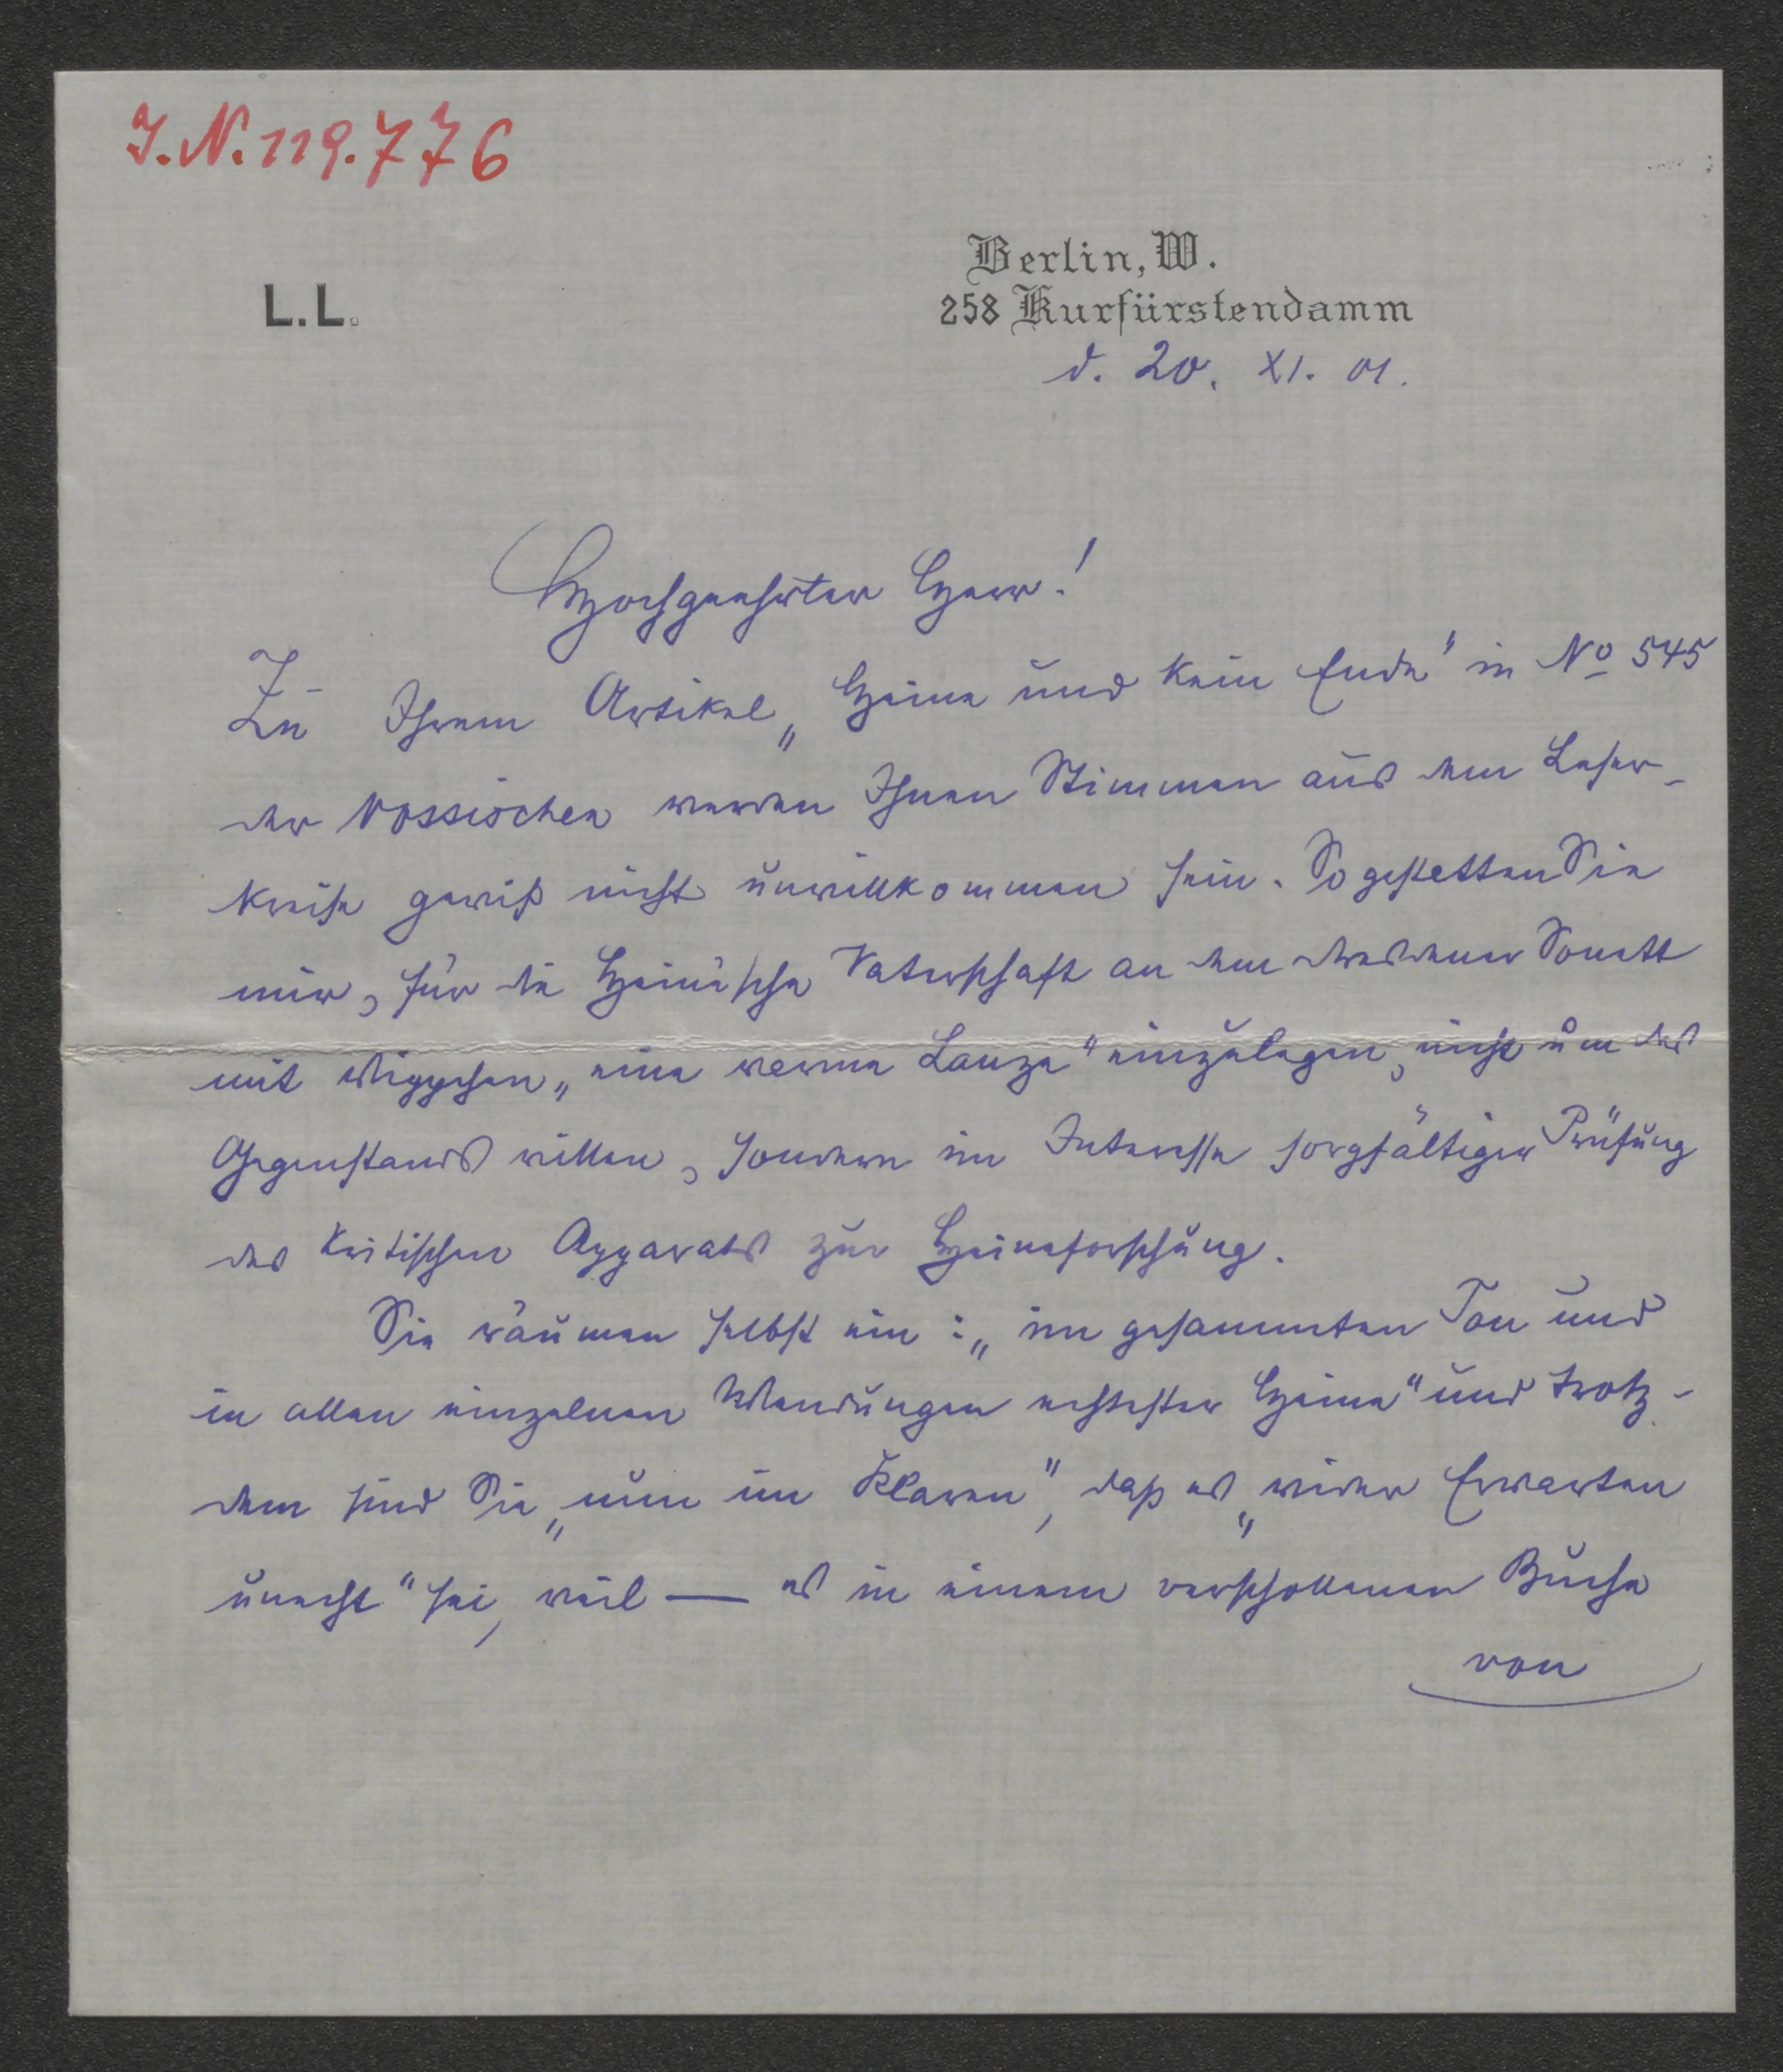 J.N. 119.776
Berlin, W.
L.L.
258 Kurfürstendamm
d. 20. XI. 01.
Hochgeehrter Herr!
Zu Ihrem Artikel „Heine und kein Ende" in No 545
der Vossischen werden Ihnen Stimmen aus dem Leser-
kreise gewiß nicht unwillkommen sein. So gestatten Sie
mir, für die Heine'sche Vaterschaft an dem Dresdener Sonett
mit Wippchen „eine warme Lanze" einzulegen, nicht um des
Gegenstands willen, sondern im Interesse sorgfältiger Prüfung
des kritischen Apparats zur Heineforschung.
Sie räumen selbst ein: „im gesammten Ton und
in allen einzelnen Wendungen echtester Heine" und trotz-
dem sind Sie „nun im Klaren", daß es „wider Erwarten
unecht" sei, weil — es in einem verschollenen Buche
von